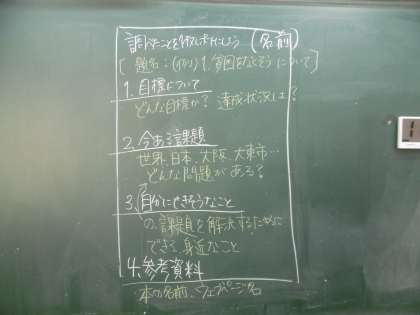 調べたことを外てんポイントにしよう (名前)
[題名:(例) 1. 貧困をなくそう について]
1. 目標について
どんな目標か? 達成状況は?
2. 今ある課題
世界、日本、大阪、大東市…
どんな問題がある?
3. 自分にできそうなこと
の課題を解決するために
できる身近なこと
4. 参考資料
本の名前、ウェブページ名
1